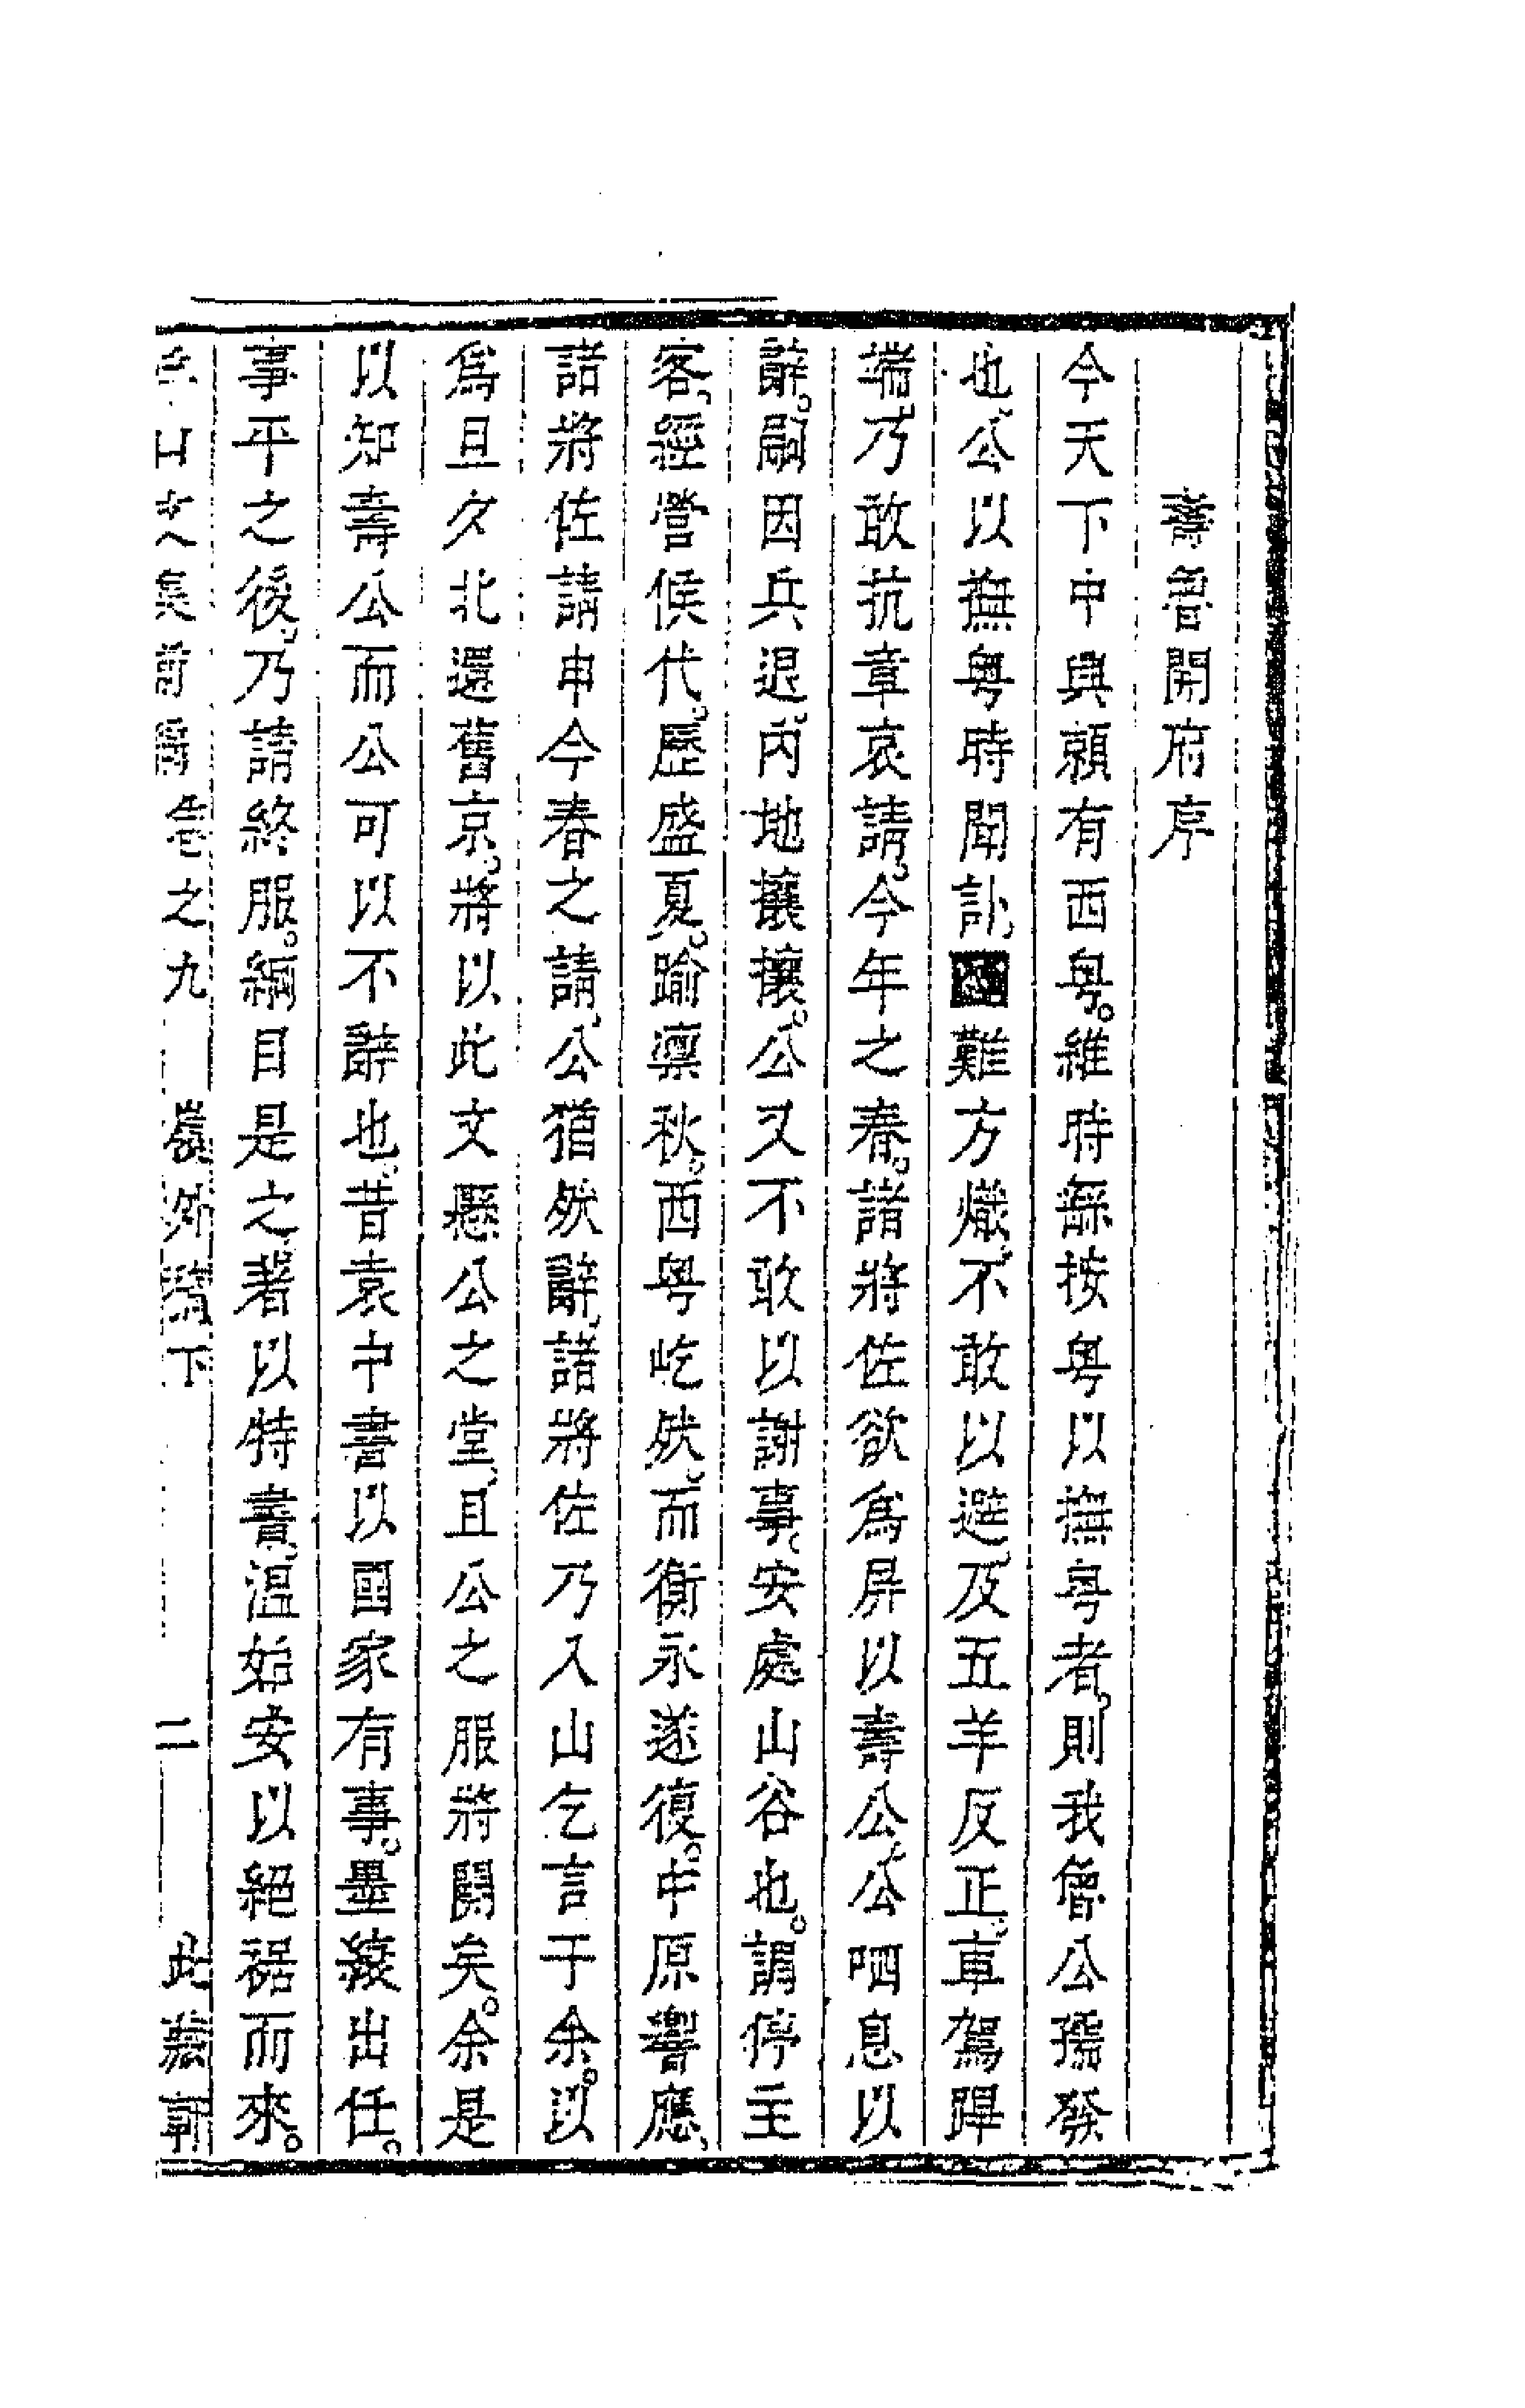 壽魯開府序
今天下中興賴有西粵。維時繇按粵以撫粵者。則我魯公孺發
也、公以撫粵時聞訃、國難方熾、不敢以避、及五羊反正、車駕蹕
端、乃敢抗章哀請、今年之春。諸將佐欲為屏以壽公、公哂息以
辭。嗣因兵退、內地攘攘。公又不敢以謝事、安處山谷也。謂停主
客、經營侯代。歷盛夏。踰凛秋。西粵屹然、而衡永遂復。中原響應、
諸將佐請申今春之請、公猶然辭、諸將佐乃入山乞言于余。以
為旦夕北還舊京。將以此文懸公之堂、且公之服將闋矣。余是
以知壽公而公可以不辭也、昔袁中書以國家有事。墨縗出任。
事平之後、乃請終服。綱目是之、著以特書、溫始安以絕裾而來。
文集前
卷之九　嶺外稿下　二　此藏軒